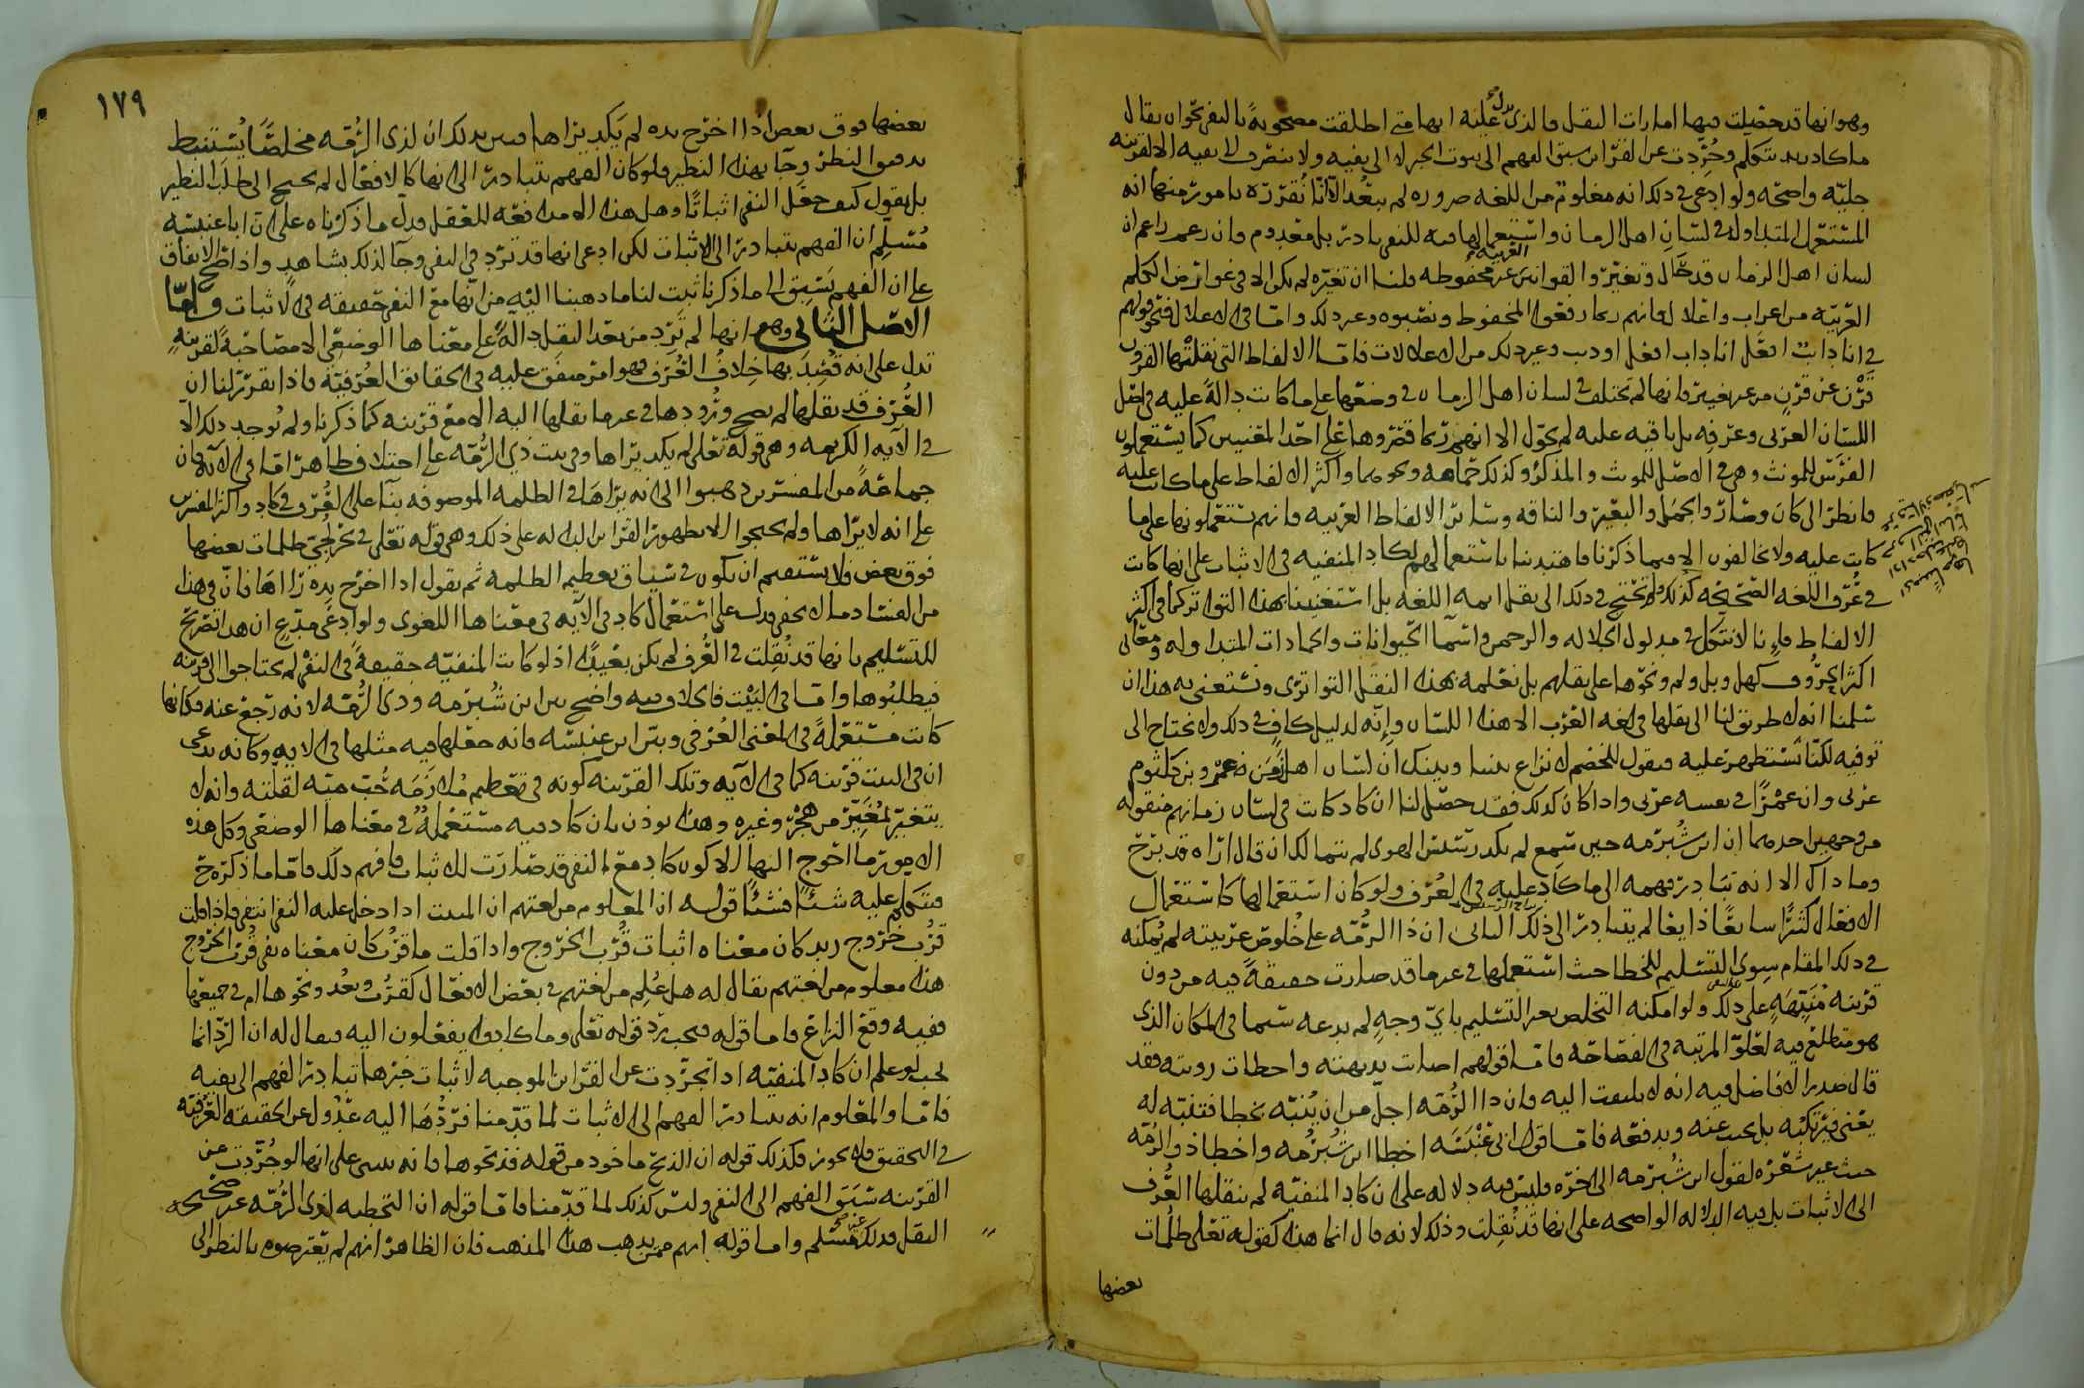 وهو انها قد حصلت فيها امارات النقل فالذي يدل عليه انها متى اطلقت مصحوبة بالنفي نحو ان يقال
ما كاد زيد يتكلم وجردت عن القراين سبق الفهم الى ثبوت الخبر لا الى نفيه ولا ينصرف الى نفيه الا لقرينه
جليه واضحه ولو ادعي في ذلك انه معلوم من اللغه ضروره لم يبعد الا انا نقرره بامور منها انه
المستعمل المتداول في لسان اهل الزمان واستعمالها فيه للنفي نادر بل معدوم فان زعم زاعم ان
لسان اهل الزمان قد حال وتغير والقوانين العربيه غير محفوظه قلنا ان تغيره لم يكن الا في عوارض الكلم
العربيه من اعراب واعلال فانهم ربما رفعوا المخفوظ ونصبوه وغير ذلك واما في الاعلال فنحو قولهم
في انا ذاب افعل اودب وغير ذلك من الاعلالات فاما الالفاظ التي نقلتها القرون
قرن عن قرن من غير تغيير فانها لم تختلف في لسان اهل الزمان في وضعها على ما كانت دالة عليه في اصل
اللسان العربي وعرفه بل باقيه عليه لم تحول الا انهم ربما قصروها على احد المعنيين كما يستعملون
الفرس للمونث وهي في الاصل للمونث والمذكر وكذلك حمامه ونحوها واكثر الالفاظ على ما كانت عليه
فانظر الى كان وصار والجمل والبعير والناقه وسائر الالفاظ العربيه فانهم يستعملونها على ما
كانت عليه ولا تخالفون الا فيما ذكرنا فاهتدينا باستعمالهم لكاد المنفيه في الاثبات على انها كانت
في عرف اللغه الصحيحه كذلك ولم نحتج في ذلك الى نقل ائمه اللغه بل استغنينا بهذا التواتر كما في اكثر
الالفاظ فاننا لا نتكل في مدلول الجلاله والرحمن واسما الحيوانات والجمادات المتداوله ومعاني
اكثر الحروف كهل وبل ولم ونحوها على نقلهم بل نعلمه بهذا النقل التواتري ونستغني به هذا وان
سلمنا انه لا طريق لنا الى نقلها في لغه العرب الا هذا اللسان وانه لدليل كاف في ذلك ولا نحتاج الى
توفيه لكنا نستظهر عليه فنقول للخصم لا نزاع بيننا وبينك ان لسان اهل زمن عمرو بن كلثوم
عربي وان عمرًا في نفسه عربي واذا كان كذلك فقد حصل لنا ان كاد كانت في لسان زمانهم منقوله
من وجهين احدهما ان ابن شبرمه حين سمع لم يكد رسيس الهوى لم يتمالك ان قال اراه قد برح
وما ذاك الا انه تبادر فهمه الى ما كاد عليه في العرف ولو كان استعمالها كاستعمال
الافعال كثيرًا سابغًا ذايعًا لم يتبادر الى ذلك الثاني ان ذا الرمه على خلوص عربيته لم يمكنه
في ذلك المقام سوى التسليم للخطا حيث استعملها في غير ما قد صارت حقيقة فيه من دون
قرينه منبهة على ذلك ولو امكنه التخلص بغير التسليم باي وجه لم يدعه سيما في المكان الذي
هو متطلع فيه لعلو المرتبه في الفصاحه فاما قولهم اصابت بديهته واخطات رويته فقد
قال صدر الافاضل فيه انه لا يلتفت اليه فان ذا الرمه اجل من ان ينبه بخطا فتنبه له
يعني فيرتكبه بل يجب عنه ويدفعه فاما قول ابي عنبسه اخطا ابن شبرمه واخطا ذو الرمه
حيث غير شعره لقول ابن شبرمه الى اخره فليس فيه دلاله على ان كاد المنفيه لم ينقلها العرف
الى الاثبات بل فيه الدلاله الواضحه على انها قد نقلت وذلك لانه قال انما هذا كقوله تعلى ظلمات
بعضها
١٧٩
بعضها فوق بعض اذا اخرج يده لم يكد يراها فتبين بذلك ان لذي الرمه مخلصًا يستنبط
بدقيق النظر وجا بهذا النظير ولو كان الفهم يتبادر الى انها كالافعال لم يحتج الى طلب النظير
بل يقول كيف جعل النفي اثباتًا وهل هذا الا مدافعه للعقل فدل ما ذكرناه على ان ابا عنبسه
مسلم ان الفهم يتبادر الى الاثبات لكن ادعى انها قد ترد في النفي وجا لذلك بشاهد واذا صح الاتفاق
على ان الفهم يسبق الى ما ذكرنا ثبت لنا ما ذهبنا اليه من انها مع النفي حقيقه في الاثبات واما
الاصل الثاني وهو انها لم ترد من بعد النقل دالة على معناها الوضعي الا مصاحبة لقرينة
تدل على انه قصد بها خلاف العرف فهو امر متفق عليه في الحقائق العرفية فاذا تقرر لنا ان
العرف قد نقلها لم يصح ورودها في غير ما نقلها اليه الا مع قرينه كما ذكرنا ولم توجد ذلك الا
في الايه الكريمه وهي قوله تعلى لم يكد يراها وفي بيت ذي الرمه على اختلاف ظاهر اما في الايه فان
جماعة من المفسرين ذهبوا الى انه يراها في الظلمه الموصوفه بنا على العرف في كاد واكثر المفسرين
على انه لا يراها ولم يحتجوا الا بظهور القراين الداله على ذلك وهي قوله تعلى في بحر لجي ظلمات بعضها
فوق بعض فلا يستقيم ان يكون في سياق تعظيم الظلمه ثم يقول اذا اخرج يده راها فان في هذا
من الفساد ما لا يخفى فدل على استعمال كاد في الايه في معناها اللغوي ولو ادعى مدع ان هذا تصريح
للتسليم بانها قد نقلت في العرف لم يكن بعيدًا اذ لو كانت المنفيه حقيقة في النفي لم يحتاجوا الى قرينه
فيطلبوها واما في البيت فالخلاف فيه واضح بين ابن شبرمه وذي الرمه لانه رجع عنه فكانها
كانت مستعملة في المعنى العرفي وبين ابن عنبسه فانه جعلها فيه مثلها في الايه وكانه يدعي
ان في البيت قرينه كما في الايه وتلك القرينه كونه في تعظيم ملازمه حب ميه لقلبه وانه لا
يتغير لمغير من هجر وغيره وهذا يوذن بان كاد فيه مستعملة في معناها الوضعي وكل هذه
الامور ما احوج اليها الا كون كاد مع النفي قد صارت للاثبات فافهم ذلك فاما ما ذكره ح
فنتكلم عليه شيئًا فشيئًا قوله ان المعلوم من لغتهم ان المثبت اذا دخل عليه النفي انتفى فاذا قلت
قرب خروج زيد كان معناه اثبات قرب الخروج واذا قلت ما قرب كان معناه نفي قرب الخروج
هذا معلوم من لغتهم يقال له هل علم من لغتهم في بعض الافعال كقرب وبعد ونحوها ام في جميعها
ففيه وقع النزاع فاما قوله فيجب رد قوله تعلى وما كادوا يفعلون اليه فيقال له ان الرد انما
يجب لو علم ان كاد المنفيه اذا تجردت عن القراين الموجبه لاثبات خبرها تبادر الفهم الى نفيه
فاما والمعلوم انه يتبادر الفهم الى الاثبات لما قدمنا فردها اليه عدول عن الحقيقه العرفيه
في التحقيق فلا يجوز فكذلك قوله ان الذبح ماخوذ من قوله فذبحوها فانه مبني على انها لو جردت عن
القرينه سبق الفهم الى النفي وليس كذلك لما قدمنا فاما قوله ان التخطيه لذي الرمه غير صحيحه
النقل فذلك غير مسلم واما قوله انهم ممن يذهب هذا المذهب فان الظاهر انهم لم يعترضوه بالنظر الى